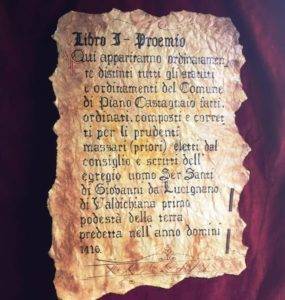 Libro I - Proemio
Qui appariranno ordinatamen-
te distinti tutti gli statuti
e ordinamenti del Comune
di Piano Castagnaio fatti,
ordinati, composti e corret
ti per li prudenti
massari (priori) eletti dal
consiglio e scritti dell'
egregio uomo Ser Santi
di Giovanni da Lucignano
di Valdichiana primo
podestà della terra
predetta nell'anno domini
1416.